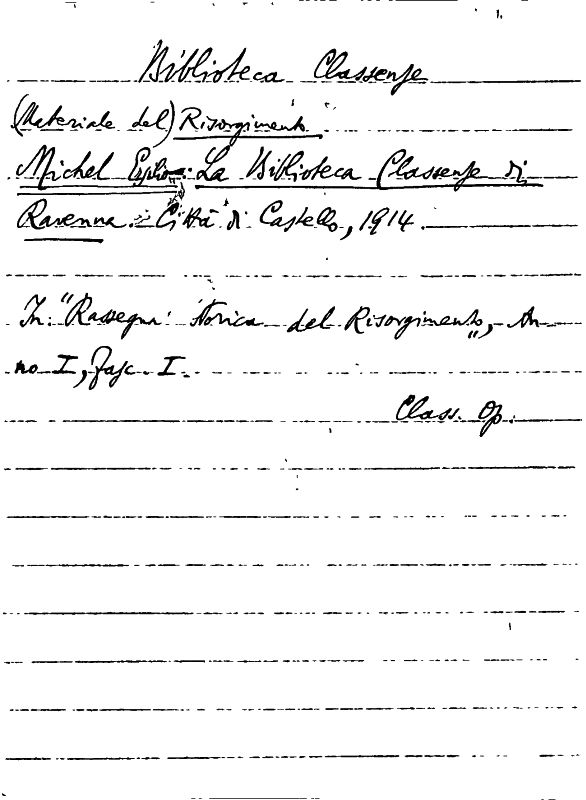 Biblioteca Classense
(Materiale del) Risorgimento
Michel Ersilio: La Biblioteca Classense di
Ravenna. Città di Castello, 1914.
In: "Rassegna storica del Risorgimento", An-
no I, fasc. I.
Class. Op.